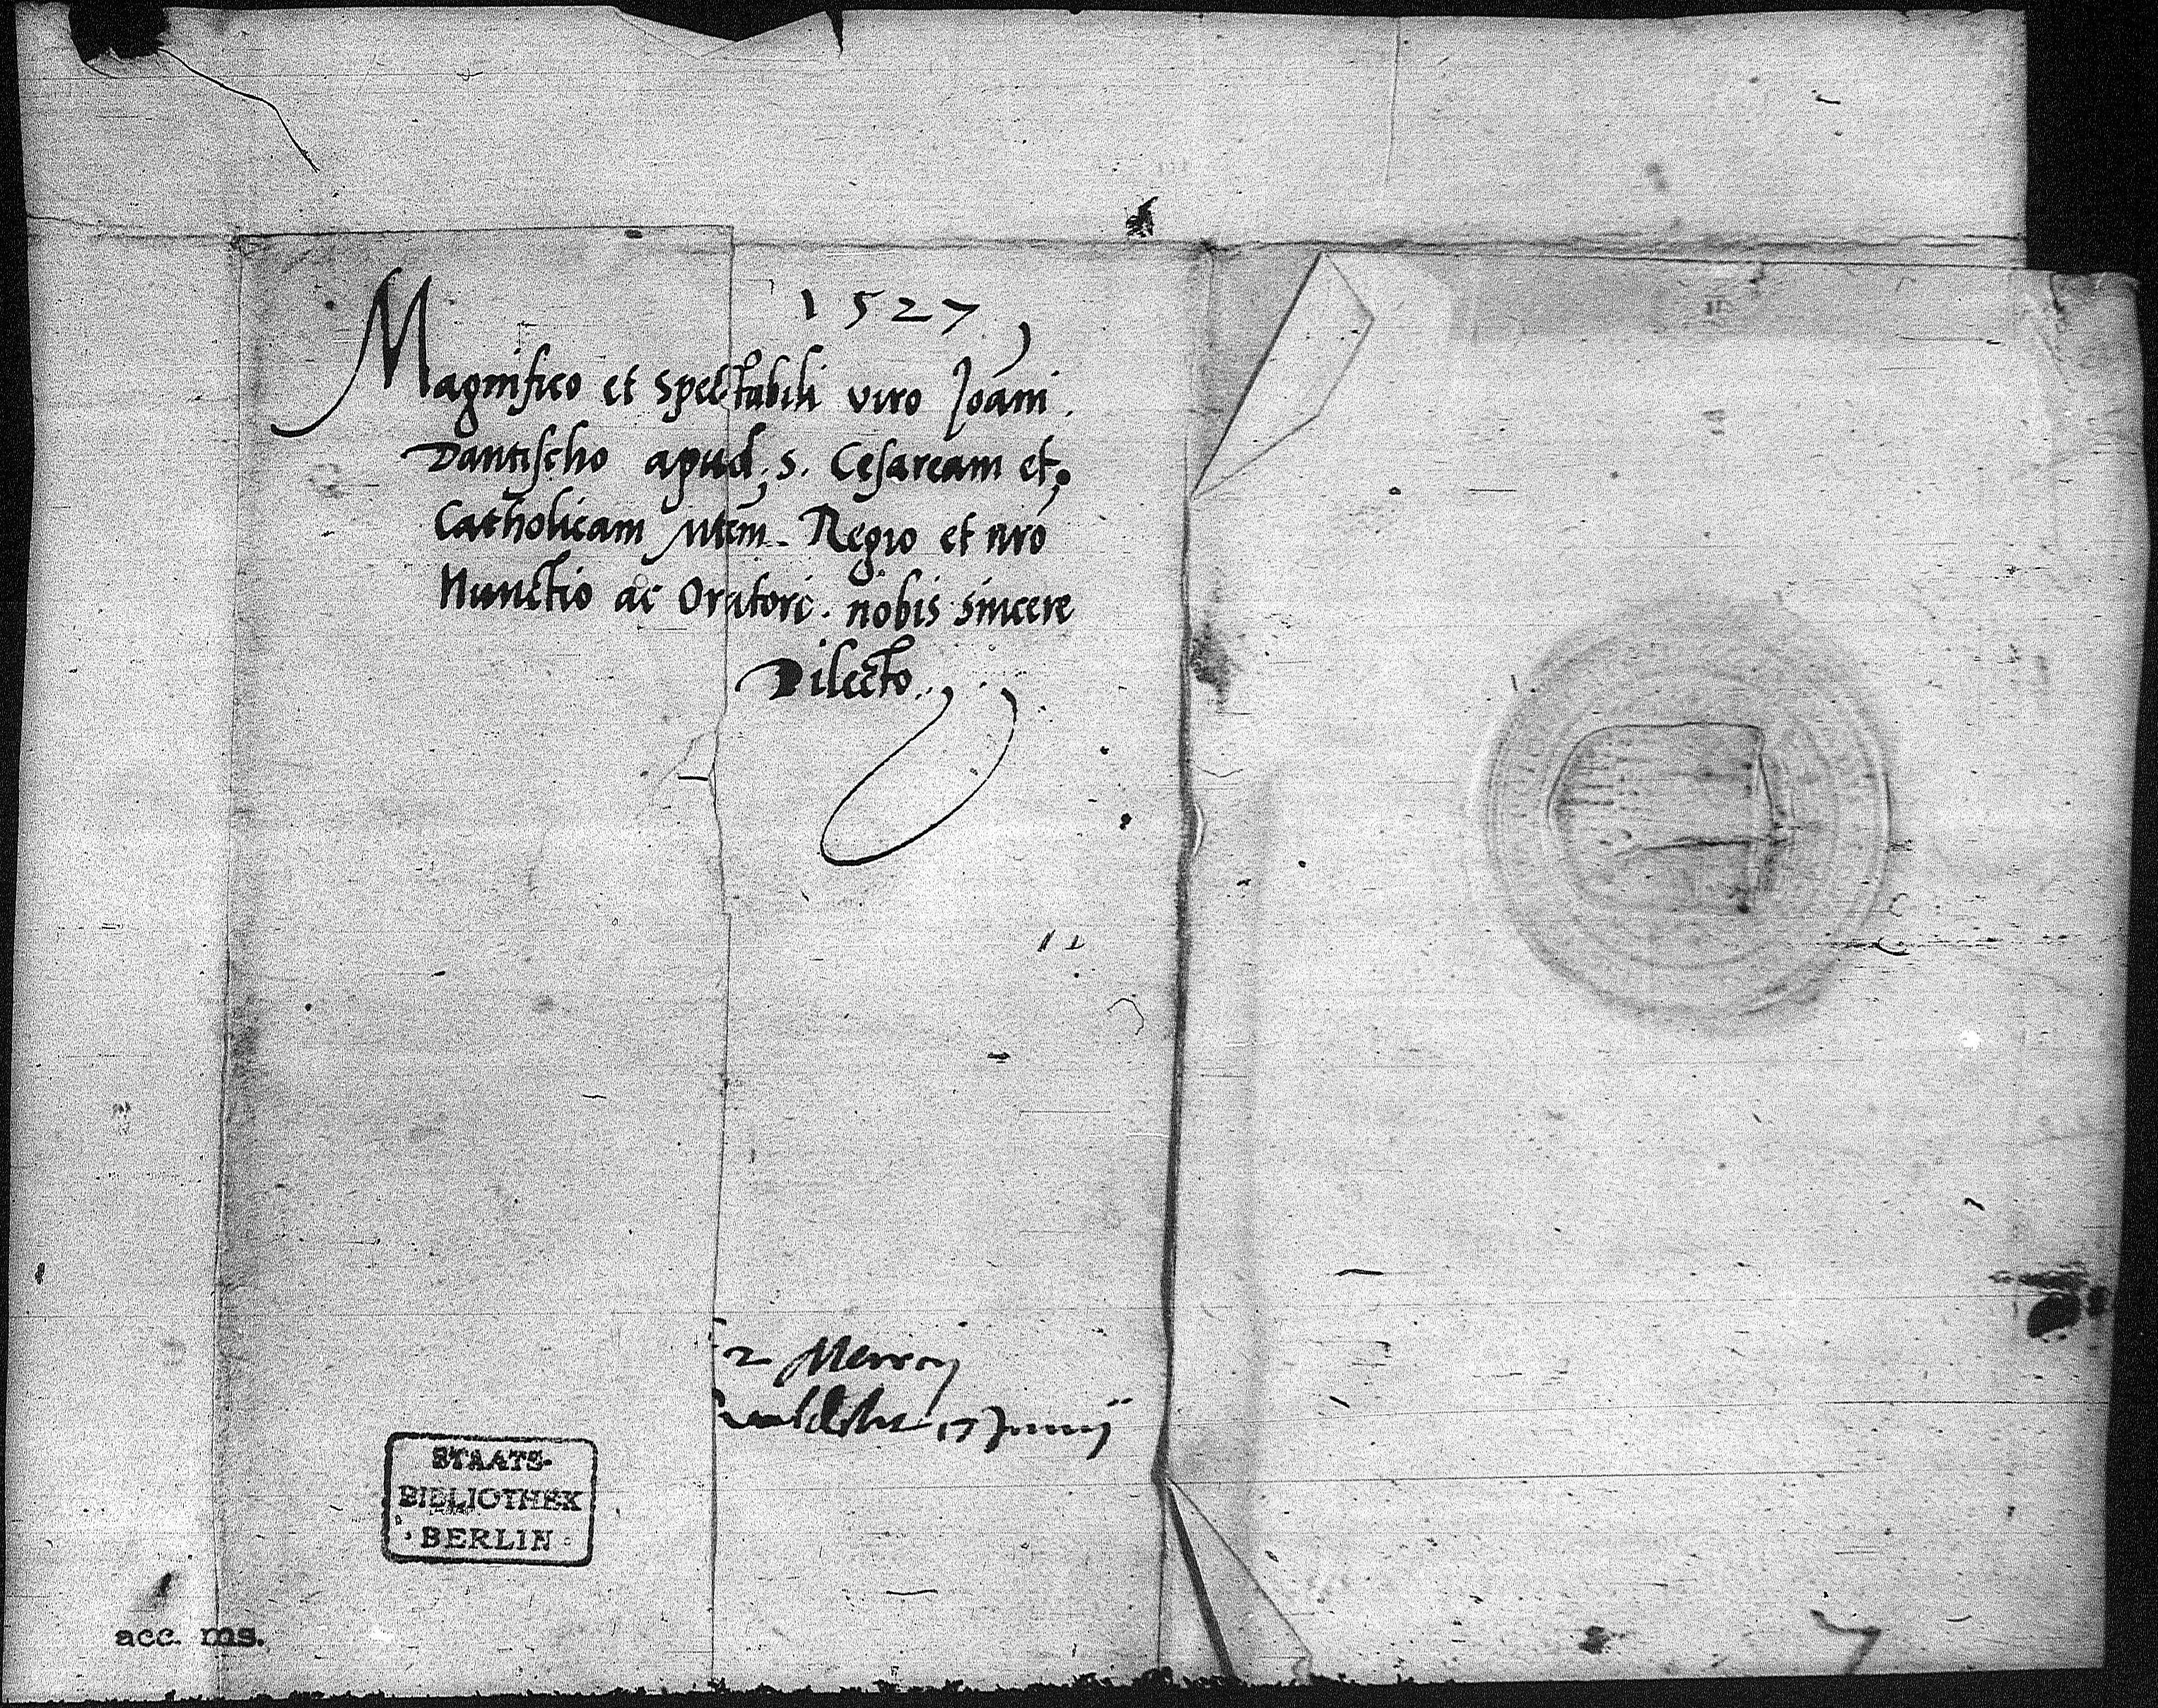 1527
Magnifico et spectabili viro Joāni
Dantischo apud. s. Cesaream et
Catholicam Mtem. Regio et nrō
Nunctio ac Oratori. nobis sincere
Dilecto.
2
17 Junij
STAATS-
BIBLIOTHEK
BERLIN
acc. ms.